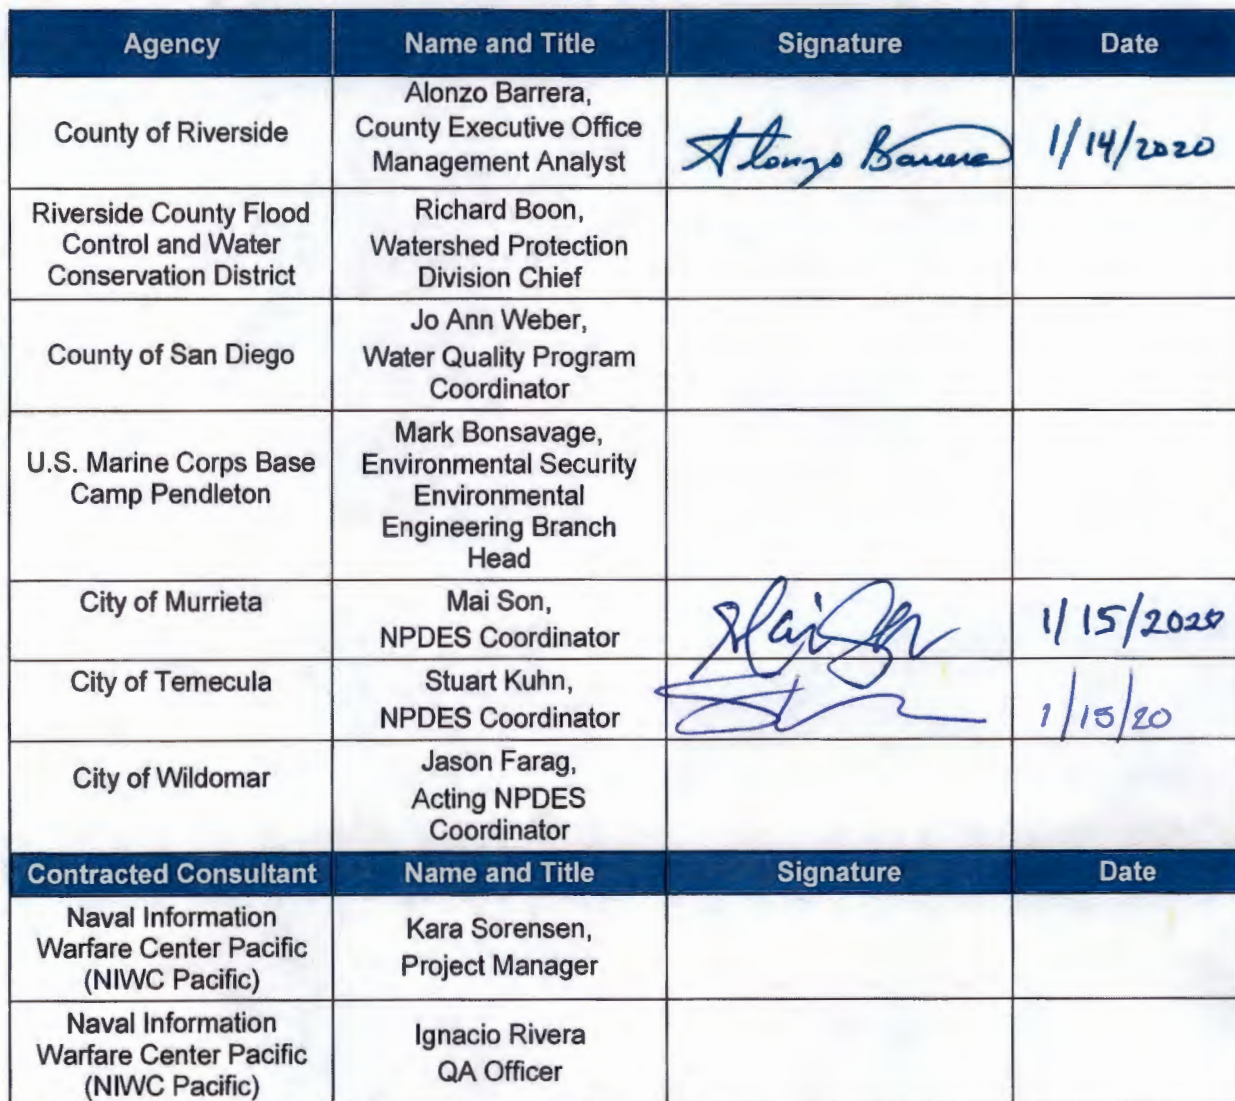 Agency Name and Title Signature Date
County of Riverside
Alonzo Barrera,
County Executive Office
Management Analyst
Alonzo Barrera
1/14/2020
Riverside County Flood
Control and Water
Conservation District
Richard Boon,
Watershed Protection
Division Chief
County of San Diego
Jo Ann Weber,
Water Quality Program
Coordinator
U.S. Marine Corps Base
Camp Pendleton
Mark Bonsavage,
Environmental Security
Environmental
Engineering Branch
Head
City of Murrieta
Mai Son,
NPDES Coordinator
Mai Son
1/15/2020
City of Temecula
Stuart Kuhn,
NPDES Coordinator
1/15/20
City of Wildomar
Jason Farag,
Acting NPDES
Coordinator
Contracted Consultant Name and Title Signature Date
Naval Information
Warfare Center Pacific
(NIWC Pacific)
Kara Sorensen,
Project Manager
Naval Information
Warfare Center Pacific
(NIWC Pacific)
Ignacio Rivera
QA Officer